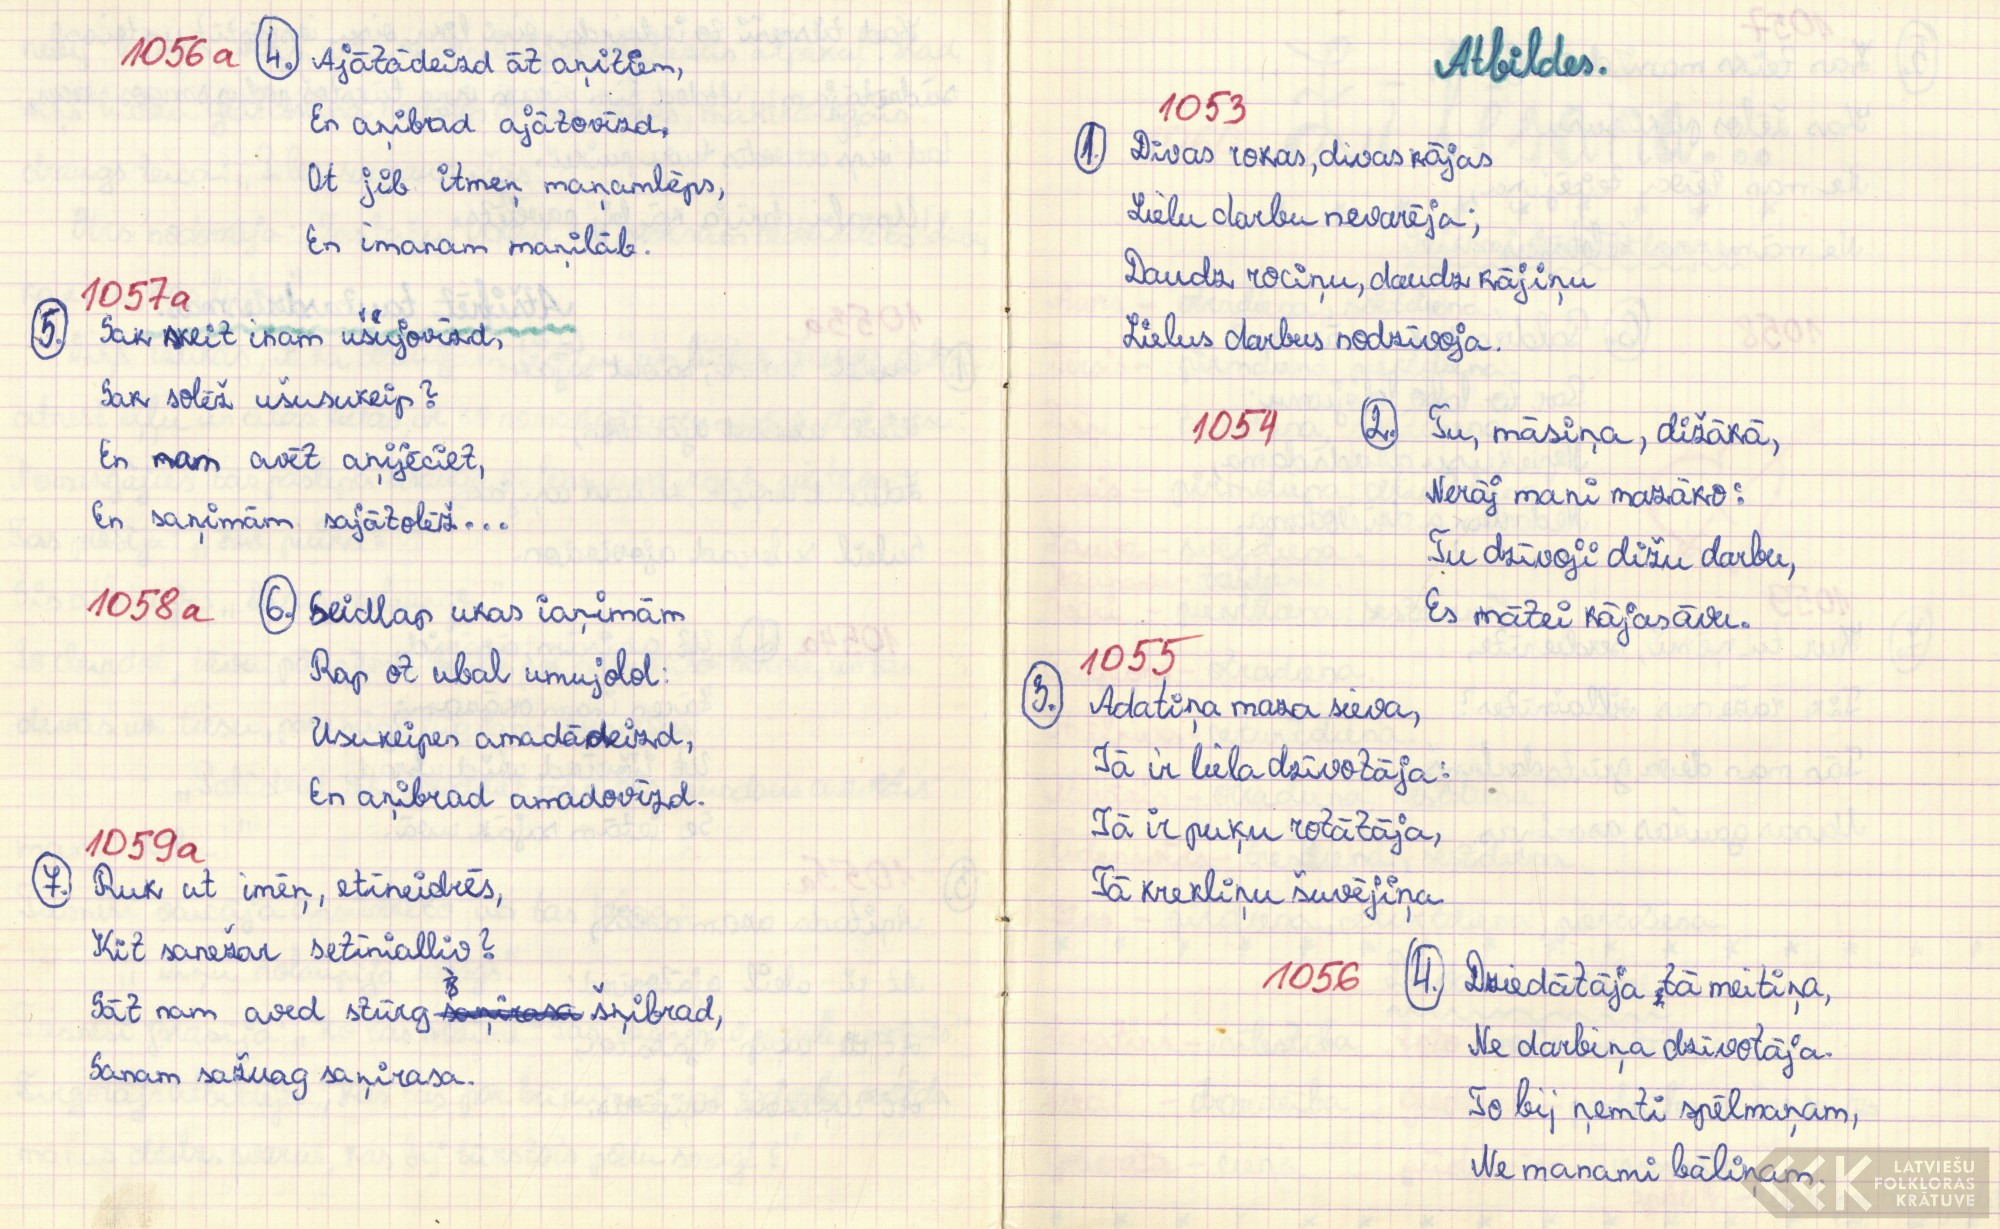 1056a 4. Ajātādeizd āt aņitiem,
En aņibrad ajātovīzd.
Ot jib itmeņ maņamlēps,
En imanam maņilāb.
1057a
5. Sak skeit inam ušujovīzd,
Sak solēž ušusukeip?
En nam avēt aņijēciet,
En saņimām sajātolēž...
1058a 6. Seidlap ukas iaņimām
Rap ot ubal umujold:
Usukeipes amadādeizd,
En aņibrad amadovīzd.
1059a
7. Ruk ut imēņ, etīneidrēs,
Kit sanežar setīnialliv?
Sāt nam aved stūrg šņibrad,
Sanam sažuag saņirasa.
Atbildes.
1053
1. Divas rokas, divas kājas
Lielu darbu nevarēja;
Daudz rociņu, daudz kājiņu
Lielus darbus nodzīvoja.
1054 2. Tu, māsiņa, dižākā,
Nerāj mani mazāko:
Tu dzīvoji dižu darbu,
Es mātei kājas āvu.
1055
3. Adatiņa maza sieva,
Tā ir liela dzīvotāja:
Tā ir puķu rotātāja,
Tā krekliņu šuvējiņa
1056 4. Dziedātāja tā meitiņa,
Ne darbiņa dzīvotāja.
To bij ņemti spēlmaņam,
Ne manami bāliņam.
LATVIEŠU
FOLKLORAS
KRĀTUVE